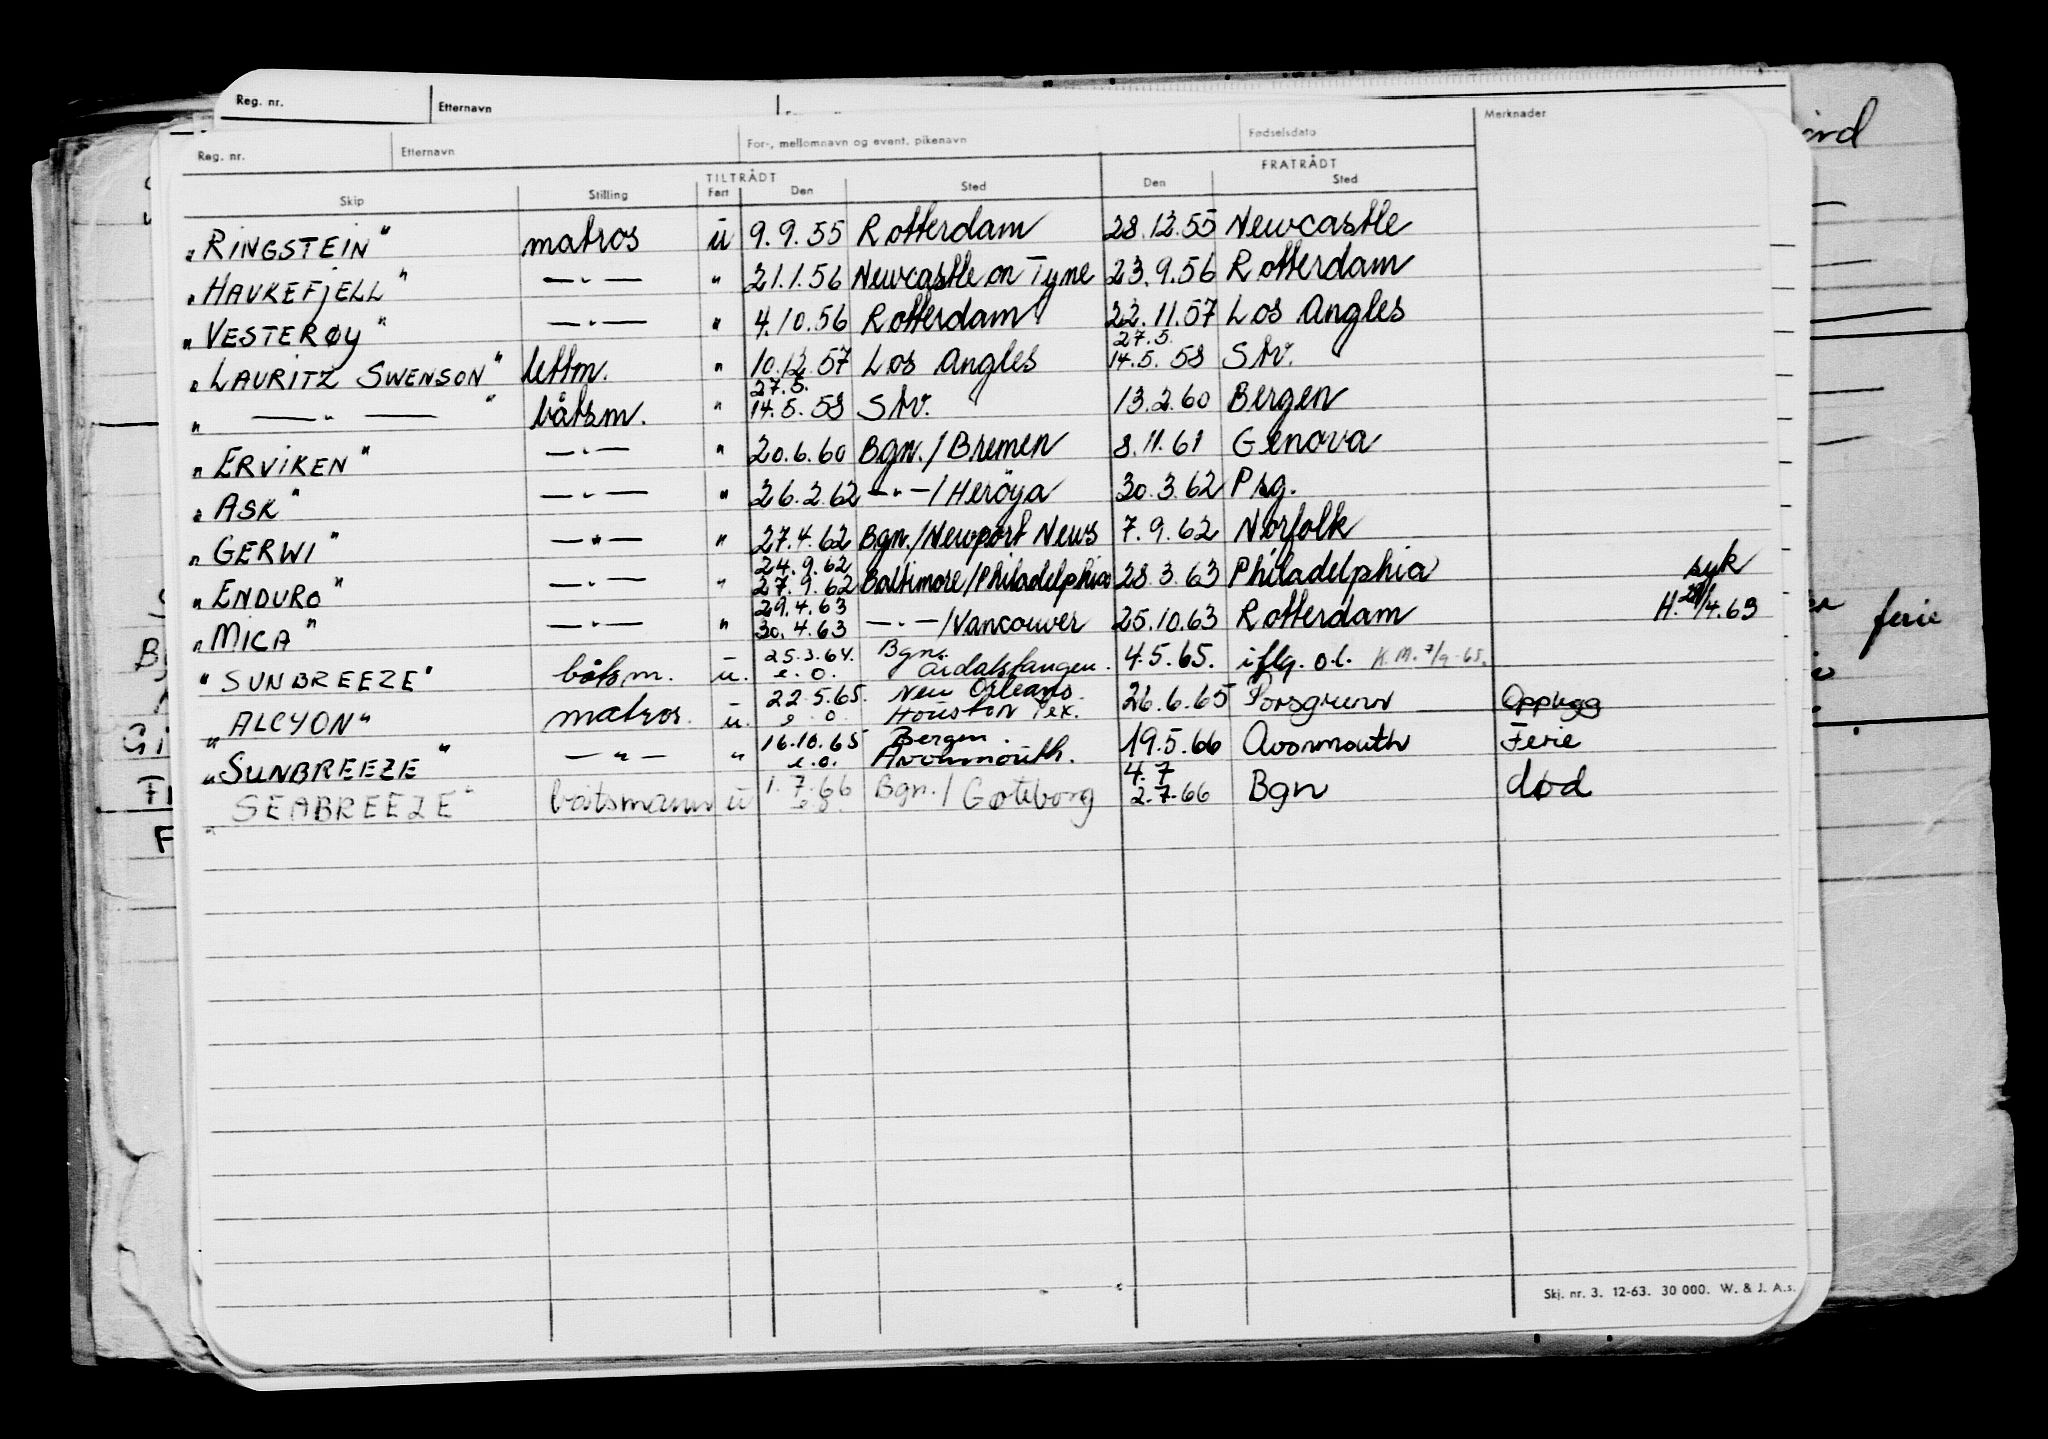 Reg. nr. Etternavn
Reg. nr. Etternavn For-, mellomnavn og event. pikenavn Fødselsdato Merknader
TILTRÅDT FRATRÅDT
Skip Stilling Fart Den Sted Den Sted
"RINGSTEIN" matros u 9.9.55 Rotterdam 28.12.55 Newcastle
"HAUKEFJELL" —"— " 21.1.56 Newcastle on Tyne 23.9.56 Rotterdam
"VESTERØY" —"— " 4.10.56 Rotterdam 22.11.57 Los Angles
27.5.
"LAURITZ SWENSON" lettm. " 10.12.57 Los Angles 14.5.58 Stv.
27.5.
"—"—" båtsm. " 14.5.58 Stv. 13.2.60 Bergen
"ERVIKEN" —"— " 20.6.60 Bgn./Bremen 8.11.61 Genova
"ASK" —"— " 26.2.62 —"—/Herøya 30.3.62 Psg.
"GERWI" —"— " 27.4.62 Bgn./Newport News 7.9.62 Norfolk
24.9.62
"ENDURO" —"— " 27.9.62 Baltimore/Philadelphia 28.3.63 Philadelphia syk
29.4.63
"MICA" —"— " 30.4.63 —"—/Vancouver 25.10.63 Rotterdam H. /4.63
25.3.64. Bgn.
"SUNBREEZE" båtsm. u. e.o. Årdalstangen. 4.5.65. iflg. o.l. K.M. 7/9-65.
22.5.65. New Orleans
"ALCYON" matros. u. e.o. Houston Tex. 26.6.65 Porsgrunn Opplegg
16.10.65 Bergen.
"SUNBREEZE" —"— " e.o. Avonmouth. 19.5.66 Avonmouth Ferie
1.7.66 4.7
"SEABREEZE" båtsmann u e.o. Bgn./Gøteborg 2.7.66 Bgn død
ferie
Skj. nr. 3. 12-63. 30 000. W. & J. A.s.